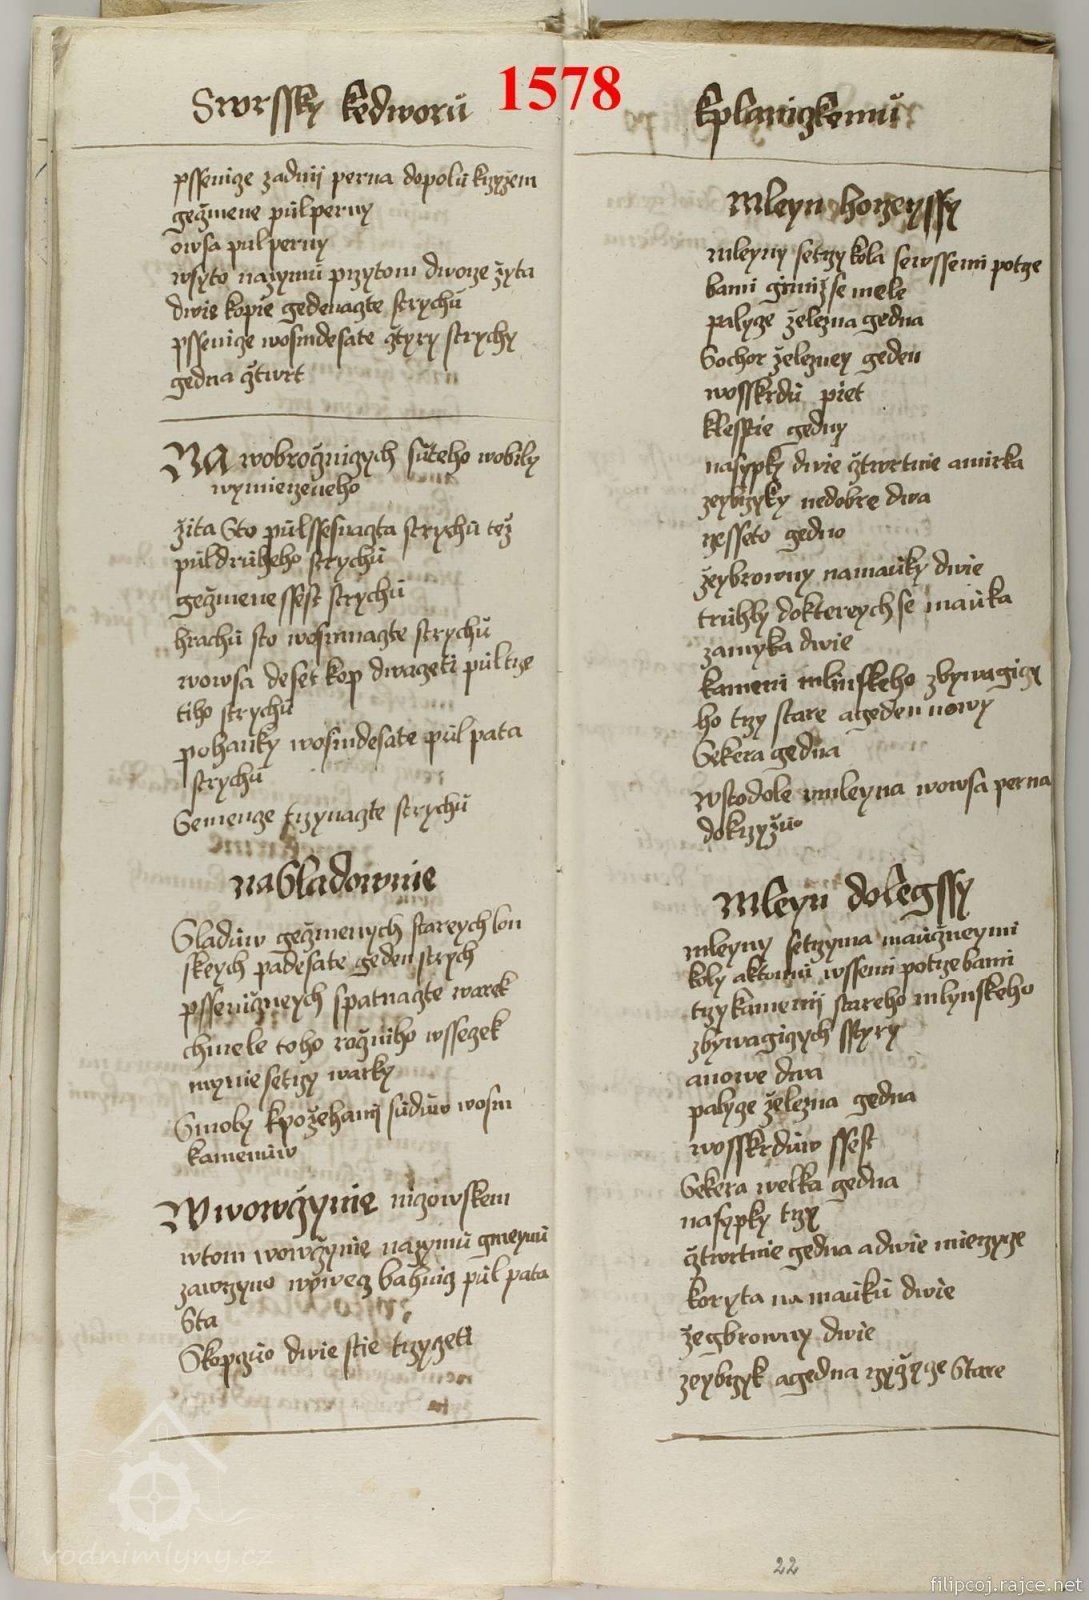 Swrssky kedworu
pssenicze zadnij perna dopolu krzyžem
gežmene pulperny
owsa pulperny
wsyto nazymu przytom dworze žyta
dwie kopie gedenagte strychu
pssenicze wosmdesate čtyry strychy
gedna čtwrt
NA wobročnigych suteho wobily
wymierzeneho
žita Sto pulssesnagta strychu též
puldruheho strychu
gežmene ssest strychu
hrachu sto wosmnagte strychu
wowsa deset kop dwageti pultrze
tiho strychu
pohanky wosmdesate pulpata
strychu
Semenge trzynagte strychu
na Sladownie
Sladuw gežmenych stareych lon
skeych padesate geden strych
pssenižneych spatnagte warek
chmele toho ročniho wssezek
mynie setrzy warky
Smoly kpožehanij suduw wosm
kamenuw
W wowčzynie nizowskem
wtom wowčzynie nazymu gmeymu
zawrzyno wowecz bahnicz pul pata
Sta
Skopczuo dwie stie trzyczeti
1578
kplaniczkemu
Mleyn horzeyssy
mleyny setrzy kola sewssemi potrze
bami gimiž se mele
palycze železna gedna
Sochor železney geden
wosskrdu piet
klesstie gedny
nasypky dwie čtwrtnie a mirka
zeybrzyky nedobre dwa
rzesseto gedno
žeybrowny namauky dwie
truhly doktereych se mauka
zamyka dwie
kameni mlinskeho zbywagiczy
ho trzy stare a geden nowy
Sekera gedna
wstodole umleyna wowsa perna
dokrzyžuo
Mleyn dolegssy
mleyny setrzyma maučneymi
koly aktomu wssemi potrzebami
trzy kamenij stareho mlynskeho
zbywagiczych sstyry
anowe dwa
palycze železna gedna
wosskrduw ssest
Sekera welka gedna
nasypky trzy
čtwrtnie gedna a dwie mierzycze
koryta na mauku dwie
žegbrowny dwie
zeybrzyk a gedna rzyčzycze Stare
22
vodnimlyny.cz
filipcoj.rajce.net